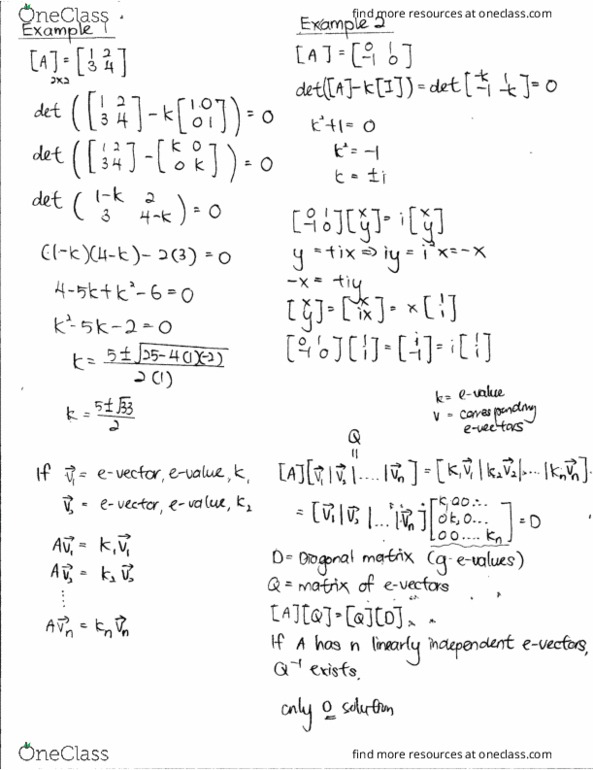 OneClass
find more resources at oneclass.com
Example 1
[A]2x2 = [1 2
3 4]
det ([1 2
3 4] - k[1 0
0 1]) = 0
det ([1 2
3 4] - [k 0
0 k]) = 0
det (1-k 2
3 4-k) = 0
(1-k)(4-k) - 2(3) = 0
4-5k+k²-6 = 0
k²-5k-2 = 0
k = 5±√25-4(1)(-2)
2(1)
k = 5±√33
2
Example 2
[A] = [0 1
-1 0]
det([A]-k[I]) = det[-k 1
-1 -k] = 0
k²+1 = 0
k² = -1
k = ±i
[0 1
-1 0][x
y] = i[x
y]
y = +ix ⇒ iy = i²x = -x
-x = +iy
[x
y] = [x
ix] = x[1
i]
[0 1
-1 0][1
i] = [i
-1] = i[1
i]
k = e-value
v = corresponding
e-vectors
If v₁ = e-vector, e-value, k,
= e-vector, e-value, k₂
Av₁ = k₁v₁
⋮
Avn = knvn
Q
=
D = Diagonal matrix (g e-values)
Q = matrix of e-vectors
[A][Q] = [Q][D]
If A has n linearly independent e-vectors,
Q⁻¹ exists.
only 0 solution
OneClass
find more resources at oneclass.com